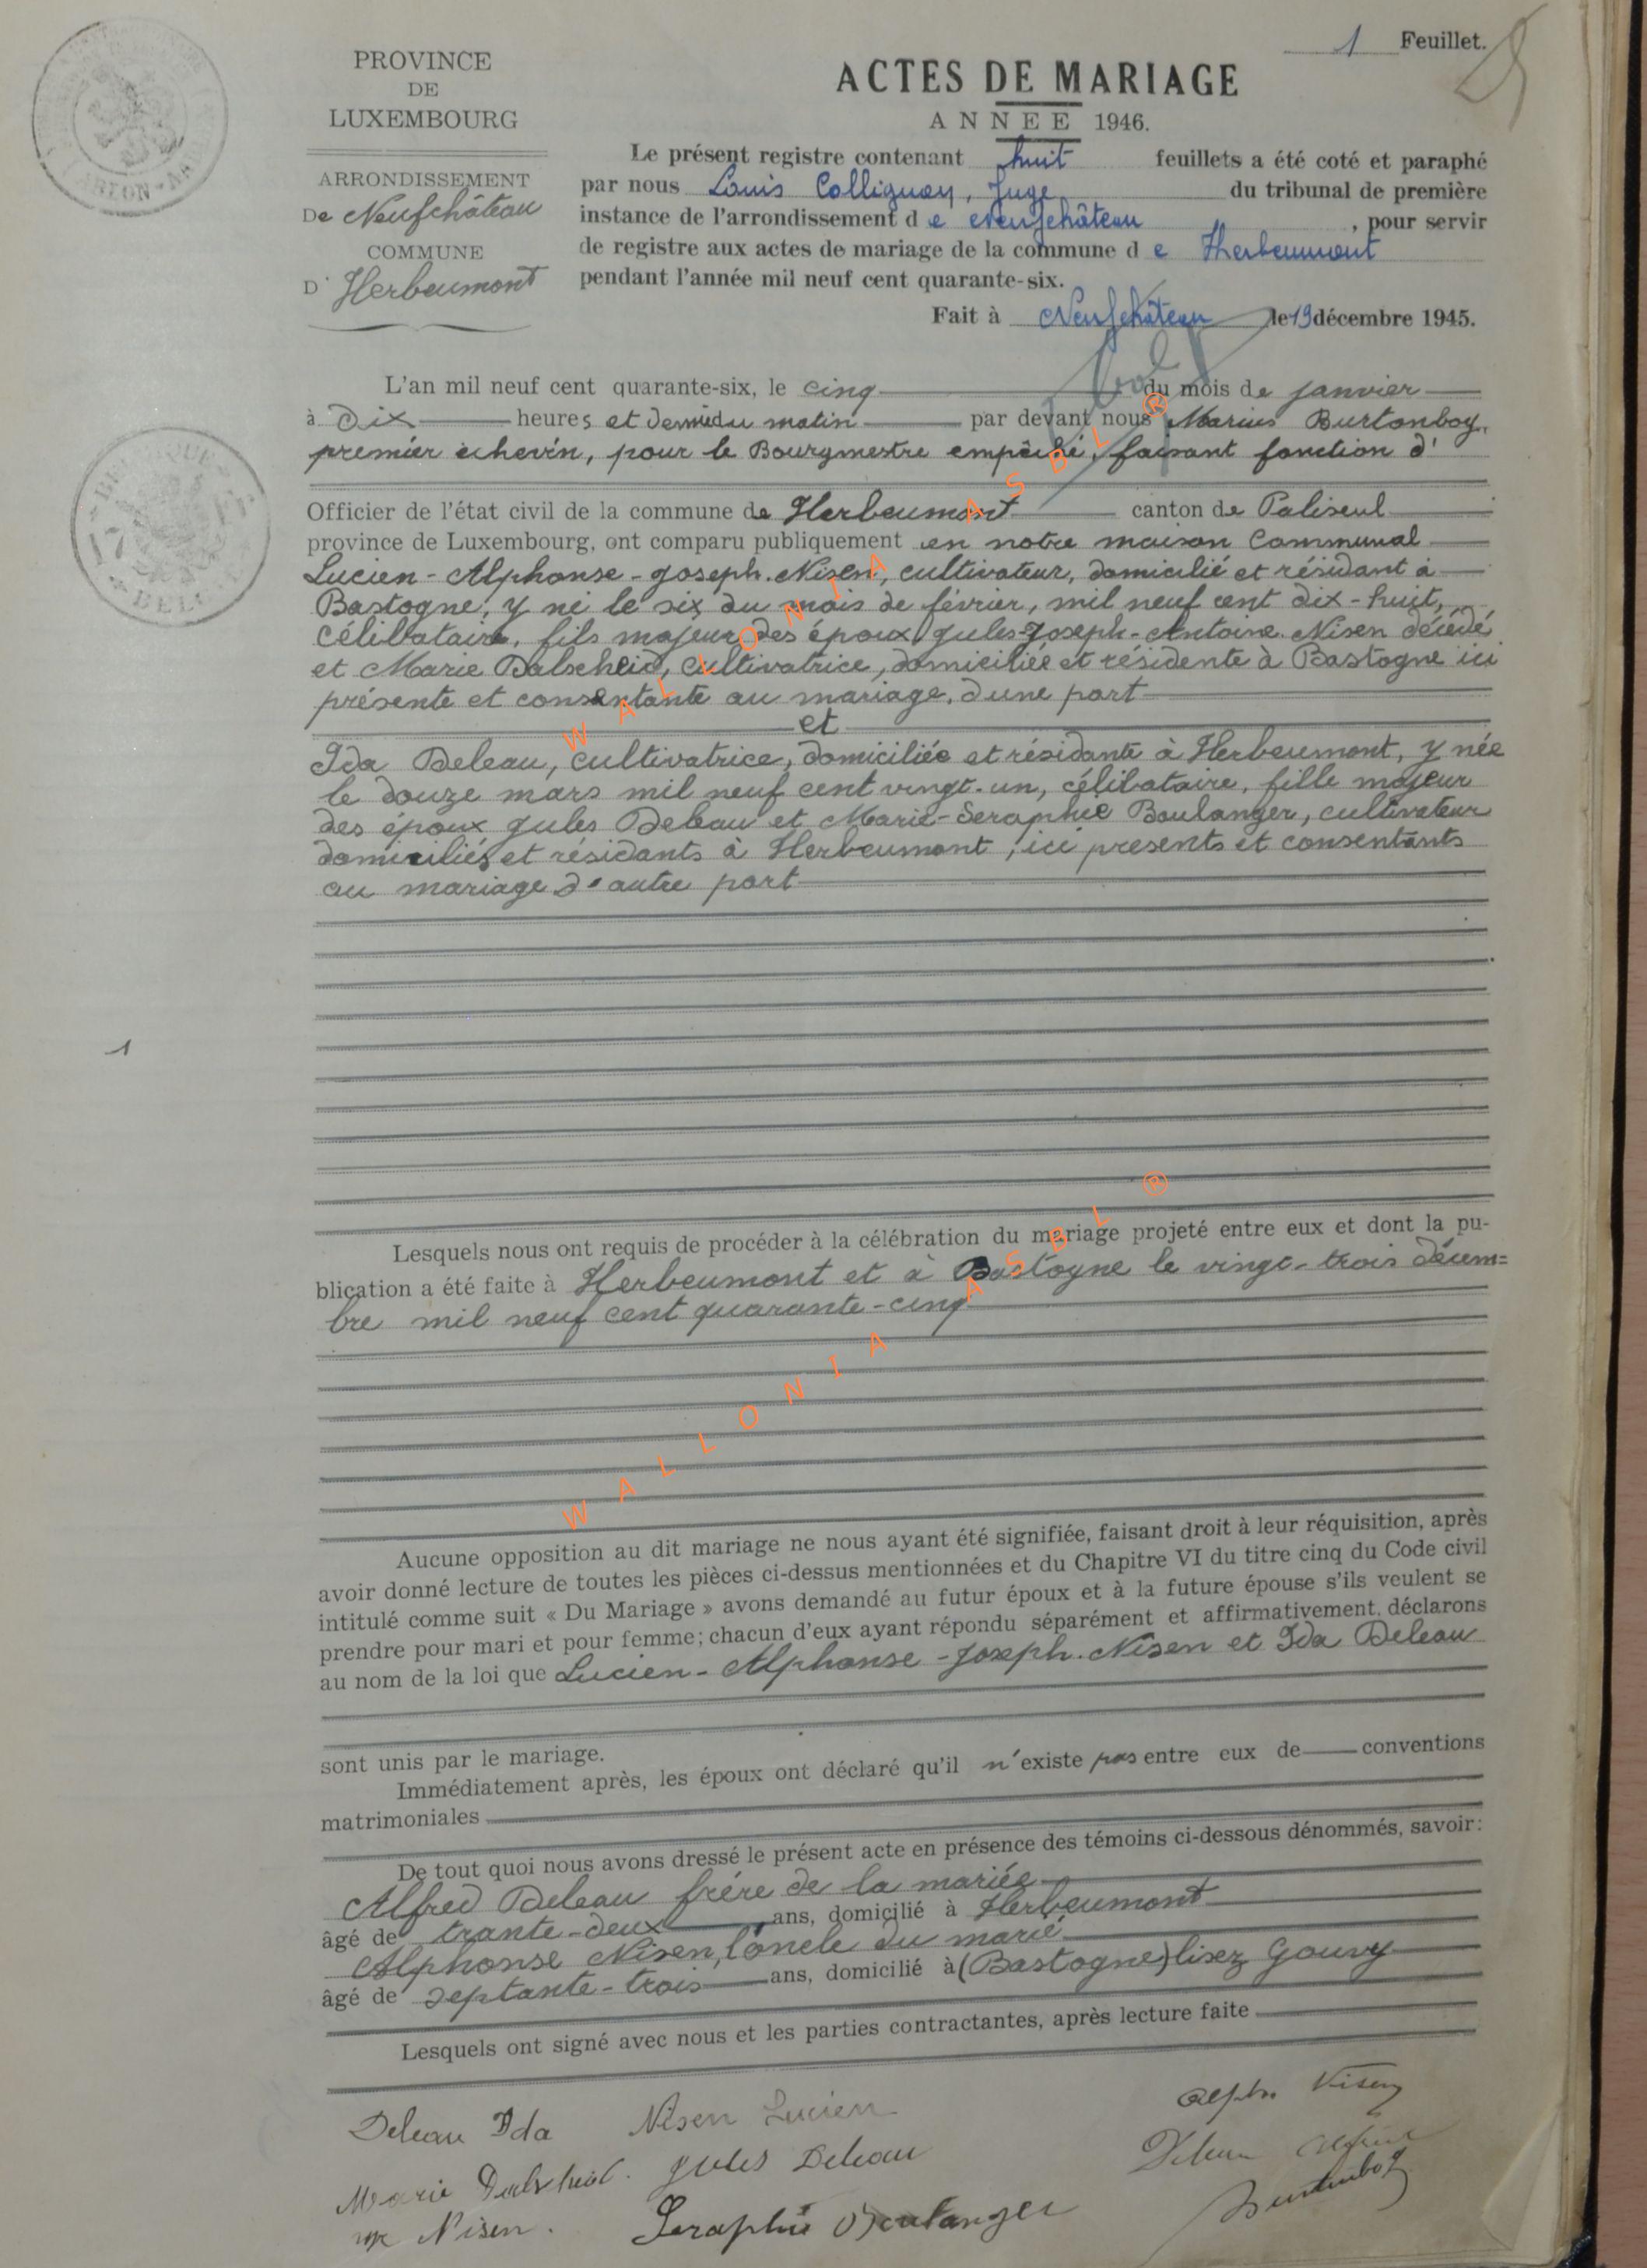 1 Feuillet.
PROVINCE
DE
LUXEMBOURG
ARRONDISSEMENT
De Neufchâteau
COMMUNE
D' Herbeumont
ACTES DE MARIAGE
ANNEE 1946.
Le présent registre contenant huit feuillets a été coté et paraphé
par nous Louis Collignon, Juge du tribunal de première
instance de l'arrondissement d e Neufchâteau , pour servir
de registre aux actes de mariage de la commune d e Herbeumont
pendant l'année mil neuf cent quarante-six.
Fait à Neufchâteau le 19 décembre 1945.
L'an mil neuf cent quarante-six, le cinq du mois de janvier
à Dix heures et demie du matin par devant nous Marius Burtomboy,
premier échevin, pour le Bourgmestre empêché, faisant fonction d'
Officier de l'état civil de la commune de Herbeumont canton de Paliseul
province de Luxembourg, ont comparu publiquement en notre maison Communal
Lucien-Alphonse-Joseph. Nisen, cultivateur, domicilié et résidant à
Bastogne, y né le six du mois de février, mil neuf cent dix-huit,
célibataire, fils majeur des époux Jules-Joseph-Antoine Nisen décédé
et Marie Dalscheid, cultivatrice, domiciliée et résidente à Bastogne ici
présente et consentante au mariage, d'une part
et
Ida Deleau, cultivatrice, domiciliée et résidante à Herbeumont, y née
le douze mars mil neuf cent vingt-un, célibataire, fille majeur
des époux Jules Deleau et Marie-Seraphie Boulanger, cultivateur
domiciliés et résidants à Herbeumont, ici presents et consentants
au mariage d'autre part
1
Lesquels nous ont requis de procéder à la célébration du mariage projeté entre eux et dont la pu-
blication a été faite à Herbeumont et à Bastogne le vingt-trois décem=
bre mil neuf cent quarante-cinq
Aucune opposition au dit mariage ne nous ayant été signifiée, faisant droit à leur réquisition, après
avoir donné lecture de toutes les pièces ci-dessus mentionnées et du Chapitre VI du titre cinq du Code civil
intitulé comme suit « Du Mariage » avons demandé au futur époux et à la future épouse s'ils veulent se
prendre pour mari et pour femme; chacun d'eux ayant répondu séparément et affirmativement, déclarons
au nom de la loi que Lucien-Alphonse-Joseph. Nisen et Ida Deleau
sont unis par le mariage.
Immédiatement après, les époux ont déclaré qu'il n'existe pas entre eux de conventions
matrimoniales
De tout quoi nous avons dressé le présent acte en présence des témoins ci-dessous dénommés, savoir:
Alfred Deleau frère de la mariée
âgé de trante-deux ans, domicilié à Herbeumont
Alphonse Nisen, l'oncle du marié
âgé de septante-trois ans, domicilié à (Bastogne) lisez Gouvy
Lesquels ont signé avec nous et les parties contractantes, après lecture faite
Deleau Ida Nisen Lucien Alph. Nisen
Marie Dalscheid. Jules Deleau Deleau Alfred
Nisen. Seraphie Boulanger Burtomboy
WALLONIA ASBL ®
WALLONIA ASBL ®